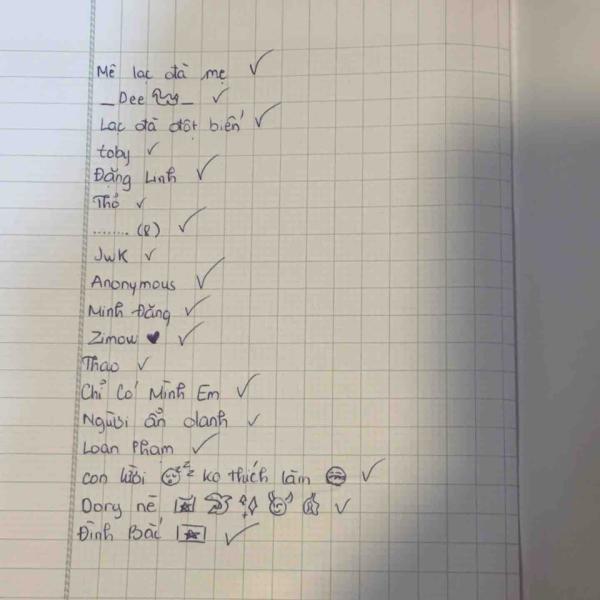 Mê lạc đà mẹ ✓
_Dee _ ✓
Lạc đà đột biến ✓
toby ✓
Đặng Linh ✓
Thỏ ✓
........ (8) ✓
JWK ✓
Anonymous ✓
Minh Đăng ✓
Zimow ♥ ✓
Thao ✓
Chỉ Có Mình Em ✓
Người ẩn danh ✓
Loan Pham ✓
con lười 😴 ko thích làm ✓
Dory nè ✓
Đình Bắc ✓